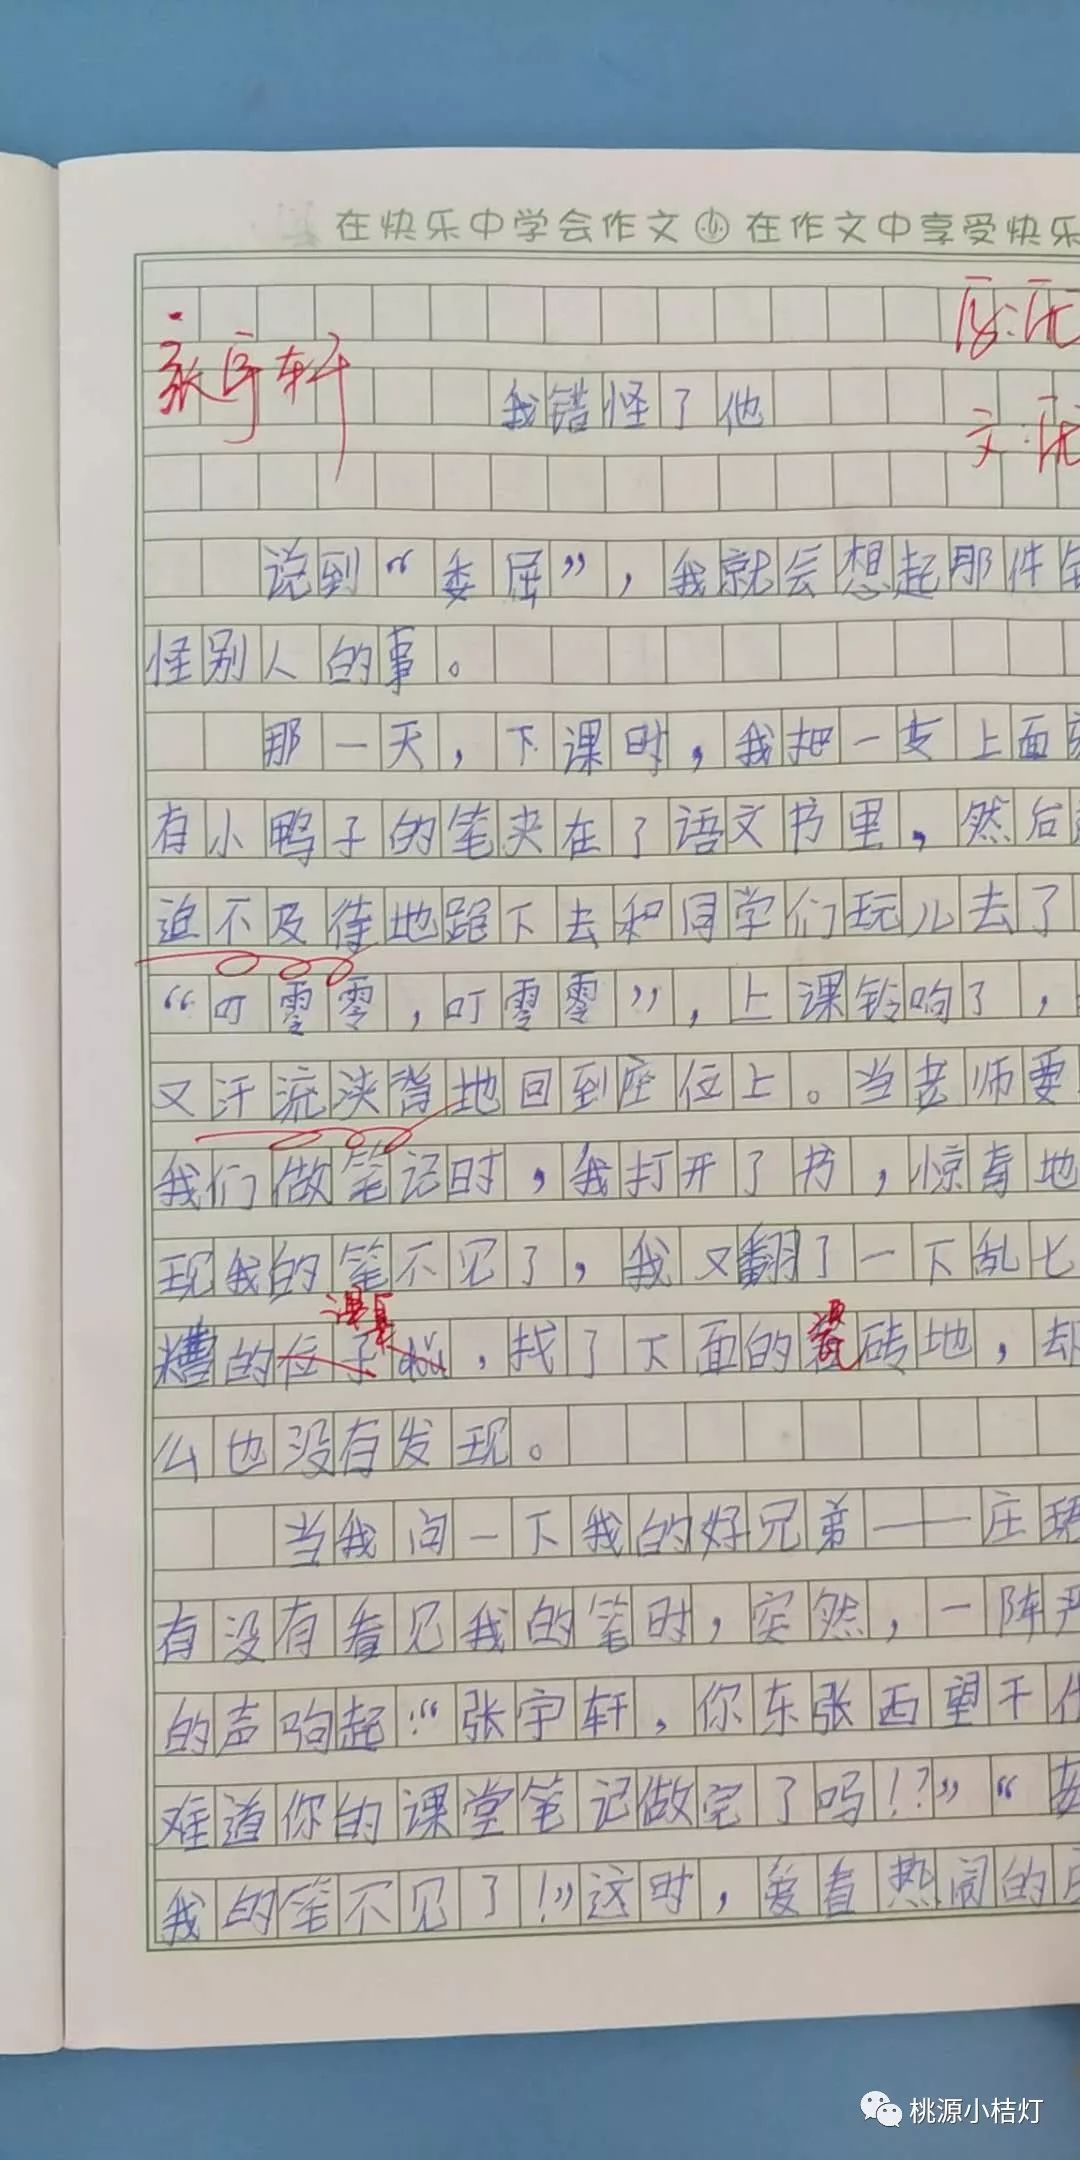 在快乐中学会作文 在作文中享受快乐
张宇轩
我错怪了他
文:优
说到“委屈”,我就会想起那件错
怪别人的事。
那一天,下课时,我把一支上面
有小鸭子的笔夹在了语文书里,然后
迫不及待地跑下去和同学们玩儿去了
“叮零零,叮零零”,上课铃响了,
又汗流浃背地回到座位上。当老师要
我们做笔记时,我打开了书,惊奇地
现我的笔不见了,我又翻了一下乱七
糟的位子,找了下面的瓷砖地,却
么也没有发现。
当我问一下我的好兄弟——庄
有没有看见我的笔时,突然,一阵严
的声响起:“张宇轩,你东张西望干什
难道你的课堂笔记做完了吗!?”“
我的笔不见了!”这时,爱看热闹的
桃源小桔灯